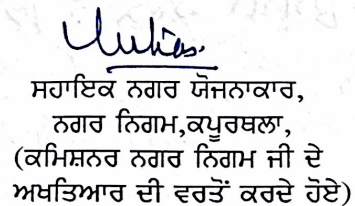 ਸਹਾਇਕ ਨਗਰ ਯੋਜਨਾਕਾਰ,
ਨਗਰ ਨਿਗਮ,ਕਪੂਰਥਲਾ,
(ਕਮਿਸ਼ਨਰ ਨਗਰ ਨਿਗਮ ਜੀ ਦੇ
ਅਖਤਿਆਰ ਦੀ ਵਰਤੋਂ ਕਰਦੇ ਹੋਏ)